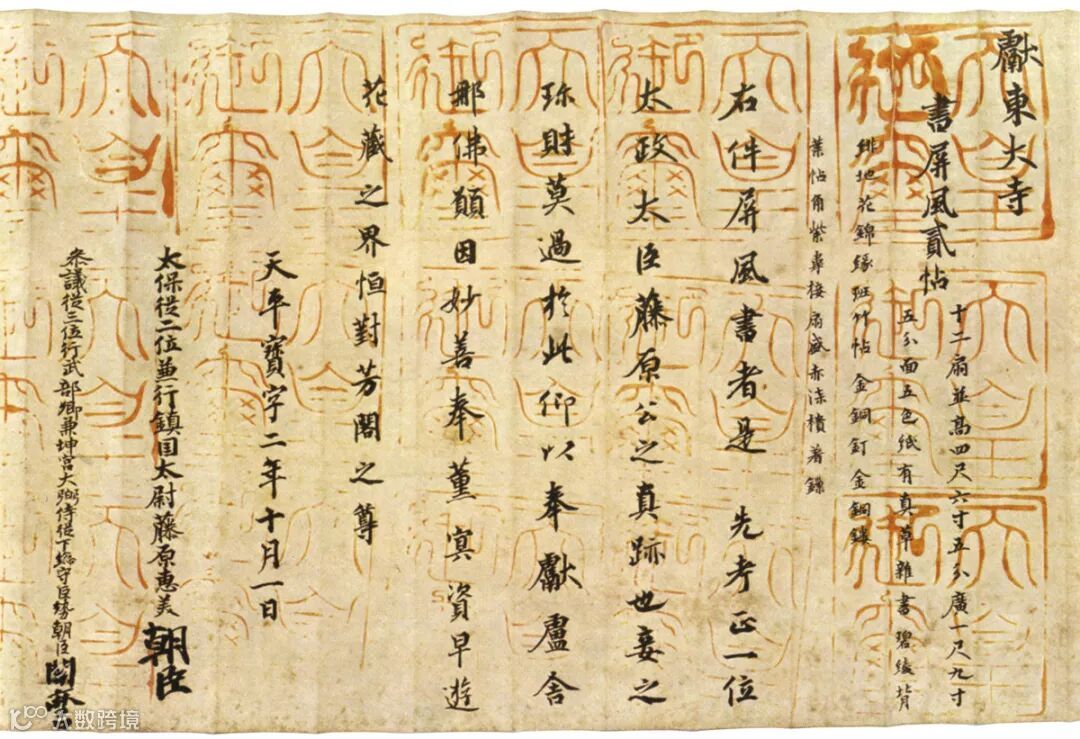 獻東大寺
書屏風貳帖 十二扇並高四尺六寸五分廣一尺九寸
五分面五色紙有真草雜書碧綾背
緋地花錦緣斑竹帖金銅釘金銅鏤
葉帖角紫接扇盛赤漆櫃著鏁
右件屏風書者是 先考正一位
太政太臣藤原公之真跡也妾之
珎財莫過於此仰以奉獻盧舍
那佛願因妙善奉薰冥資早遊
花藏之界恒對芳閣之尊
天平寶字二年十月一日
太保從二位兼行鎮国太尉藤原惠美朝臣
參議從三位行武部卿兼坤宮大弼侍從下総守巨勢朝臣関麻呂
天皇御璽
大数跨境